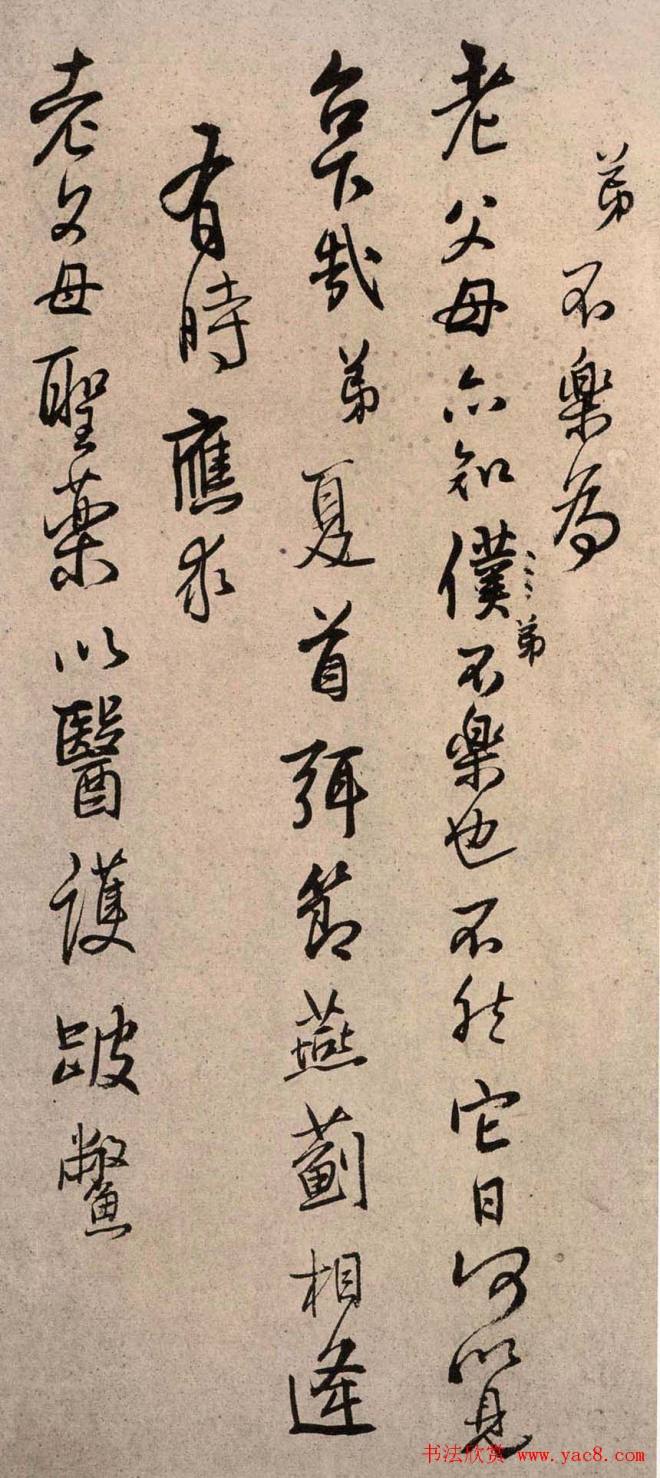 弟不樂為
老父母亦知僕不樂也不然它日何以見
弟
台下哉弟夏首弭節燕薊相逢
有時應求
老父母聖藥以醫護跛鱉
书法欣赏 www.yac8.com